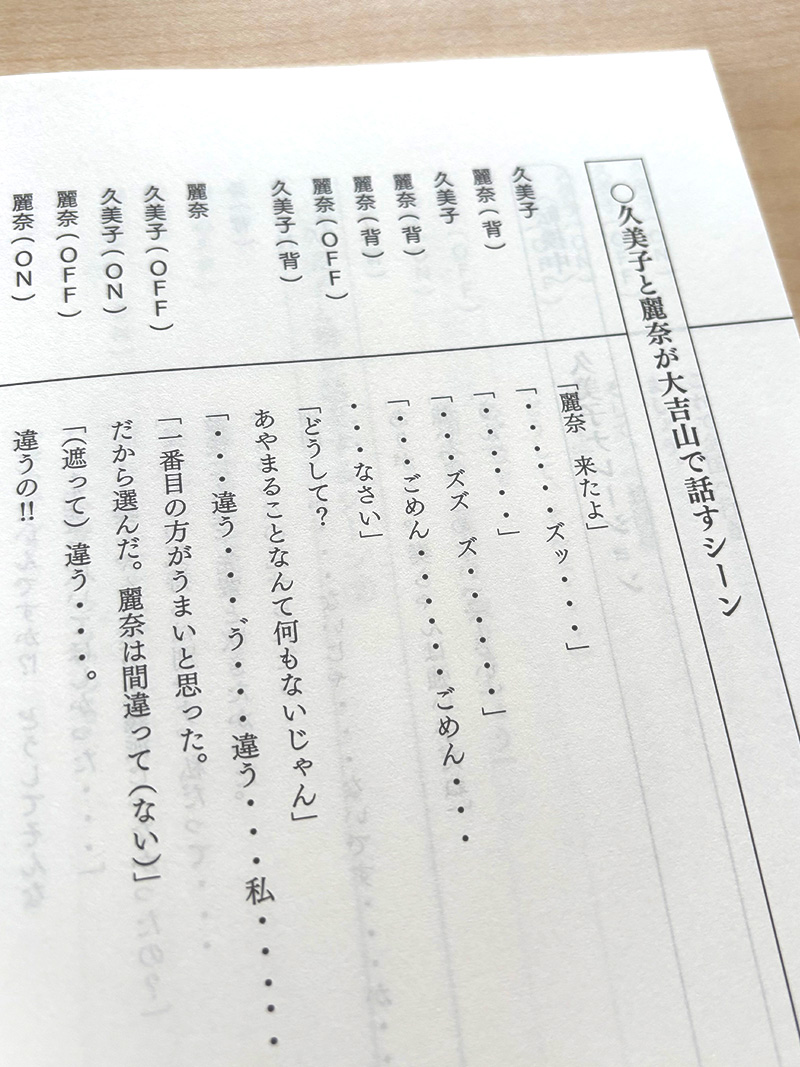 ○久美子と麗奈が大吉山で話すシーン
久美子　「麗奈　来たよ」
麗奈（背）　「・・・・・ズッ・・・」
久美子　「・・・・・」
麗奈（背）　「・・・ズズ　ズ・・・・・・」
麗奈（背）　「・・・ごめん・・・・・・ごめん・・・・
麗奈（OFF）　・・・なさい」
久美子（背）　「どうして？
あやまることなんて何もないじゃん」
麗奈　「・・・違う・・・ゔ・・・違う・・・私・・・・・
久美子（OFF）　「一番目の方がうまいと思った。
久美子（ON）　だから選んだ。麗奈は間違って（ない）」
麗奈（OFF）　「（遮って）違う・・・。
麗奈（ON）　違うの!!